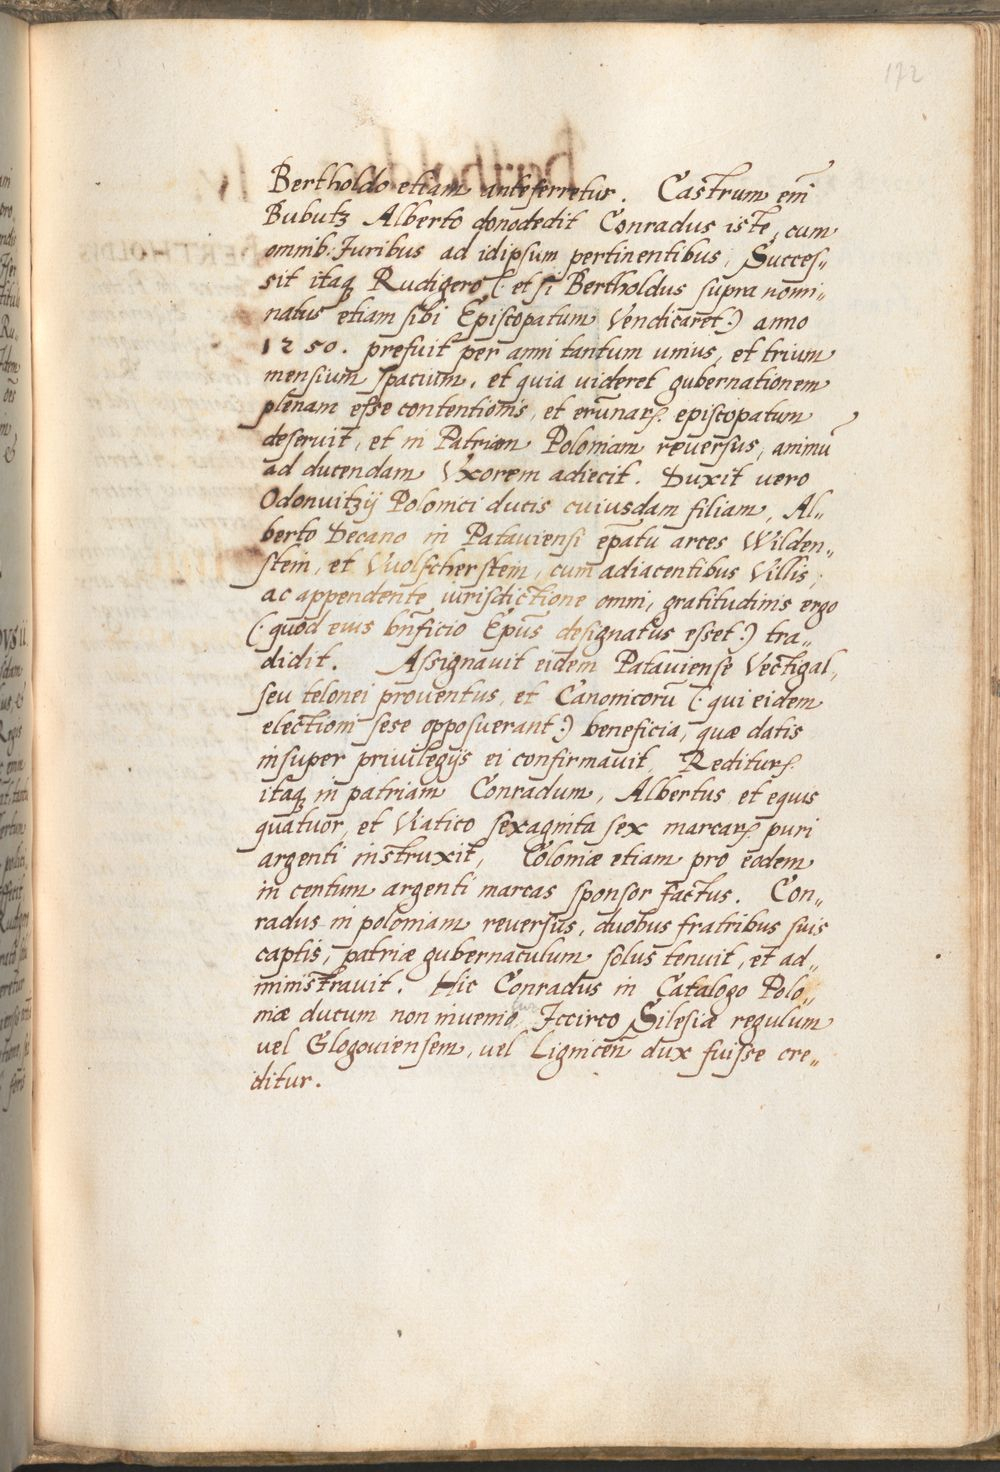 172
Bertholdo etiam anteferretur. Castrum em̄
Bubutz Alberto donodedit Conradus iste, cum
omnib: Iuribus ad idipsum pertinentibus, Succes„
sit itaq̃ Rudigero (: et si Bertholdus supra nomi„
natus etiam sibi Episcopatum Vendicaret:) anno
1250. prefuit per anni tantum unius, et trium
mensium spacium, et quia uideret gubernationem
plenam esse contentionis, et erūnarꝝ episcopatum
deseruit, et in Patriam Poloniam reuersus, animū
ad ducendam Vxorem adiecit. Duxit uero
Odonuitzij Polonici ducis cuiusdam filiam, Al„
berto Decano in Patauiensi ep̄atu arces Wilden„
stein, et Vuolfscherstein, cum adiacentibus Villis,
ac appendente iurisdictione omni, gratitudinis ergo
(: quod eius bn̄ficio Ep̄us designatus esset:) tra„
didit. Assignauit eidem Patauiense Vectigal,
seu telonei prouentus, et Canonicorū (: qui eidem
electioni sese opposuerant:) beneficia, quæ datis
insuper priuilegijs ei confirmauit, Rediturꝝ
itaq̃ in patriam Conradum, Albertus et equis
quatuor, et Viatico sexaginta sex marcarꝝ puri
argenti instruxit, Coloniæ etiam pro eodem
in centum argenti marcas sponsor factus. Con„
radus in poloniam reuersus, duobus fratribus suis
captis, patriæ gubernaculum solus tenuit, et ad„
ministrauit. Hic Conradus in Catalogo Polo„
niæ ducum non inuenio, Iccirco Silesiæ regulum
uel Glogouiensem, uel Lignicen̄ dux fuisse cre„
ditur.